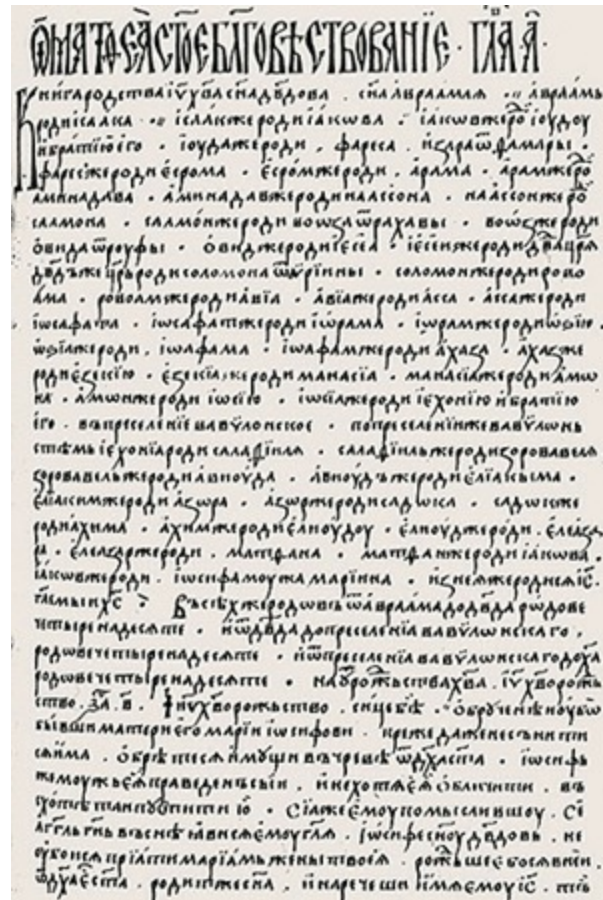 Ѿ маѳеѧ ст҃ое бл҃говѣствованїе · глⷡа а҃ ·
Книга родства і҃ѵ х҃ва сн҃а дв҃дова . сн҃а авраамлѧ ·:· авраамъ
роди ісаака ·:· ісаакже роди іакѡва . іакѡвже роⷣ іоудоу
и братїю его · іоудаже роди . фареса . и зара ѿ фамары ·
фаресже роди есрома · есромже роди . арама . арамже роⷣ
аминадава · аминадавже роди наассона . наассонже роⷣ
саамона . саамонже роди вооза ѿ рахавы . воозже роди
овида ѿ роуфы . овидже роди іесеа . іесеиже роди дв҃да цр҃ѧ
дв҃дъже цр҃ь роди соломона ѿ оурїины . соломонже роди рово
ама . ровоамже роди авїа . авїаже роди асса . ассаже роди
іѡсафата . іѡсафатже роди іѡрама . іѡрамже роди ѡзїю .
ѡзїаже роди . іѡафама . іѡафамже роди ахаза . ахазже
роди езекїю . езекїаже роди манасїа . манасїаже роди амѡ
на . амѡнже роди іѡсїю . іѡсїаже роди іехонїю и братїю
его . въ преселенїе вавѵлонское . по преселенїиже вавѵлѡнь
стѣмъ іехонїа роди салафїилѧ . салафїильже роди зоровавелѧ
зоровавельже роди авиоуда . авиоудъже роди елїакыма .
елїакимже роди азора . азорже роди садѡка . садѡкже
роди ахима . ахимже роди елиоудоу . елиоуджероди . елеаза
ра . елеазарже роди . матфана . матфанже роди іакѡва .
іакѡвже роди . іѡсифа моужа марїина . из неѧже родисѧ і҃с .
гл҃емыи х҃с · Всѣхже родовъ ѿ авраама до дв҃да рѡдове
четыренадесѧте . и ѿ дв҃да до преселенїа вавѵлѡнскаго ,
родѡве четыренадесѧте . и ѿ преселенїа вавѵлѡнскаго до х҃а
родѡве четыренадесѧте . на рожьства х҃ва . і҃ѵ х҃во рожь
ство . за҃ . в҃ . І҃ѵ х҃во рожьство . сице бѣ . обрученѣ ноубѡ
бывши матери его марїи іѡсифови . прежедаже неснити
сѧ има . обрѣтесѧ имущи въ чревѣ ѿ дх҃а ст҃а . іѡсифь
же моужь еѧ праведенъ сыи , и не хотѧ еѧ обличити . въ
схотѣ таи пустити ю . Сїаже емоу помысливш оу . се
агг҃лъ гн҃ь въ снѣ ꙗвисѧ емоу гл҃ѧ . іѡсифе сн҃оу дв҃довъ . не
оубоисѧ прїати марїамъ жены твоеѧ . рожьшеебосѧ в неи .
ѿ дх҃а ест҃ ст҃а . родитже сн҃а , и наречеши имѧ емоу і҃с . тъи